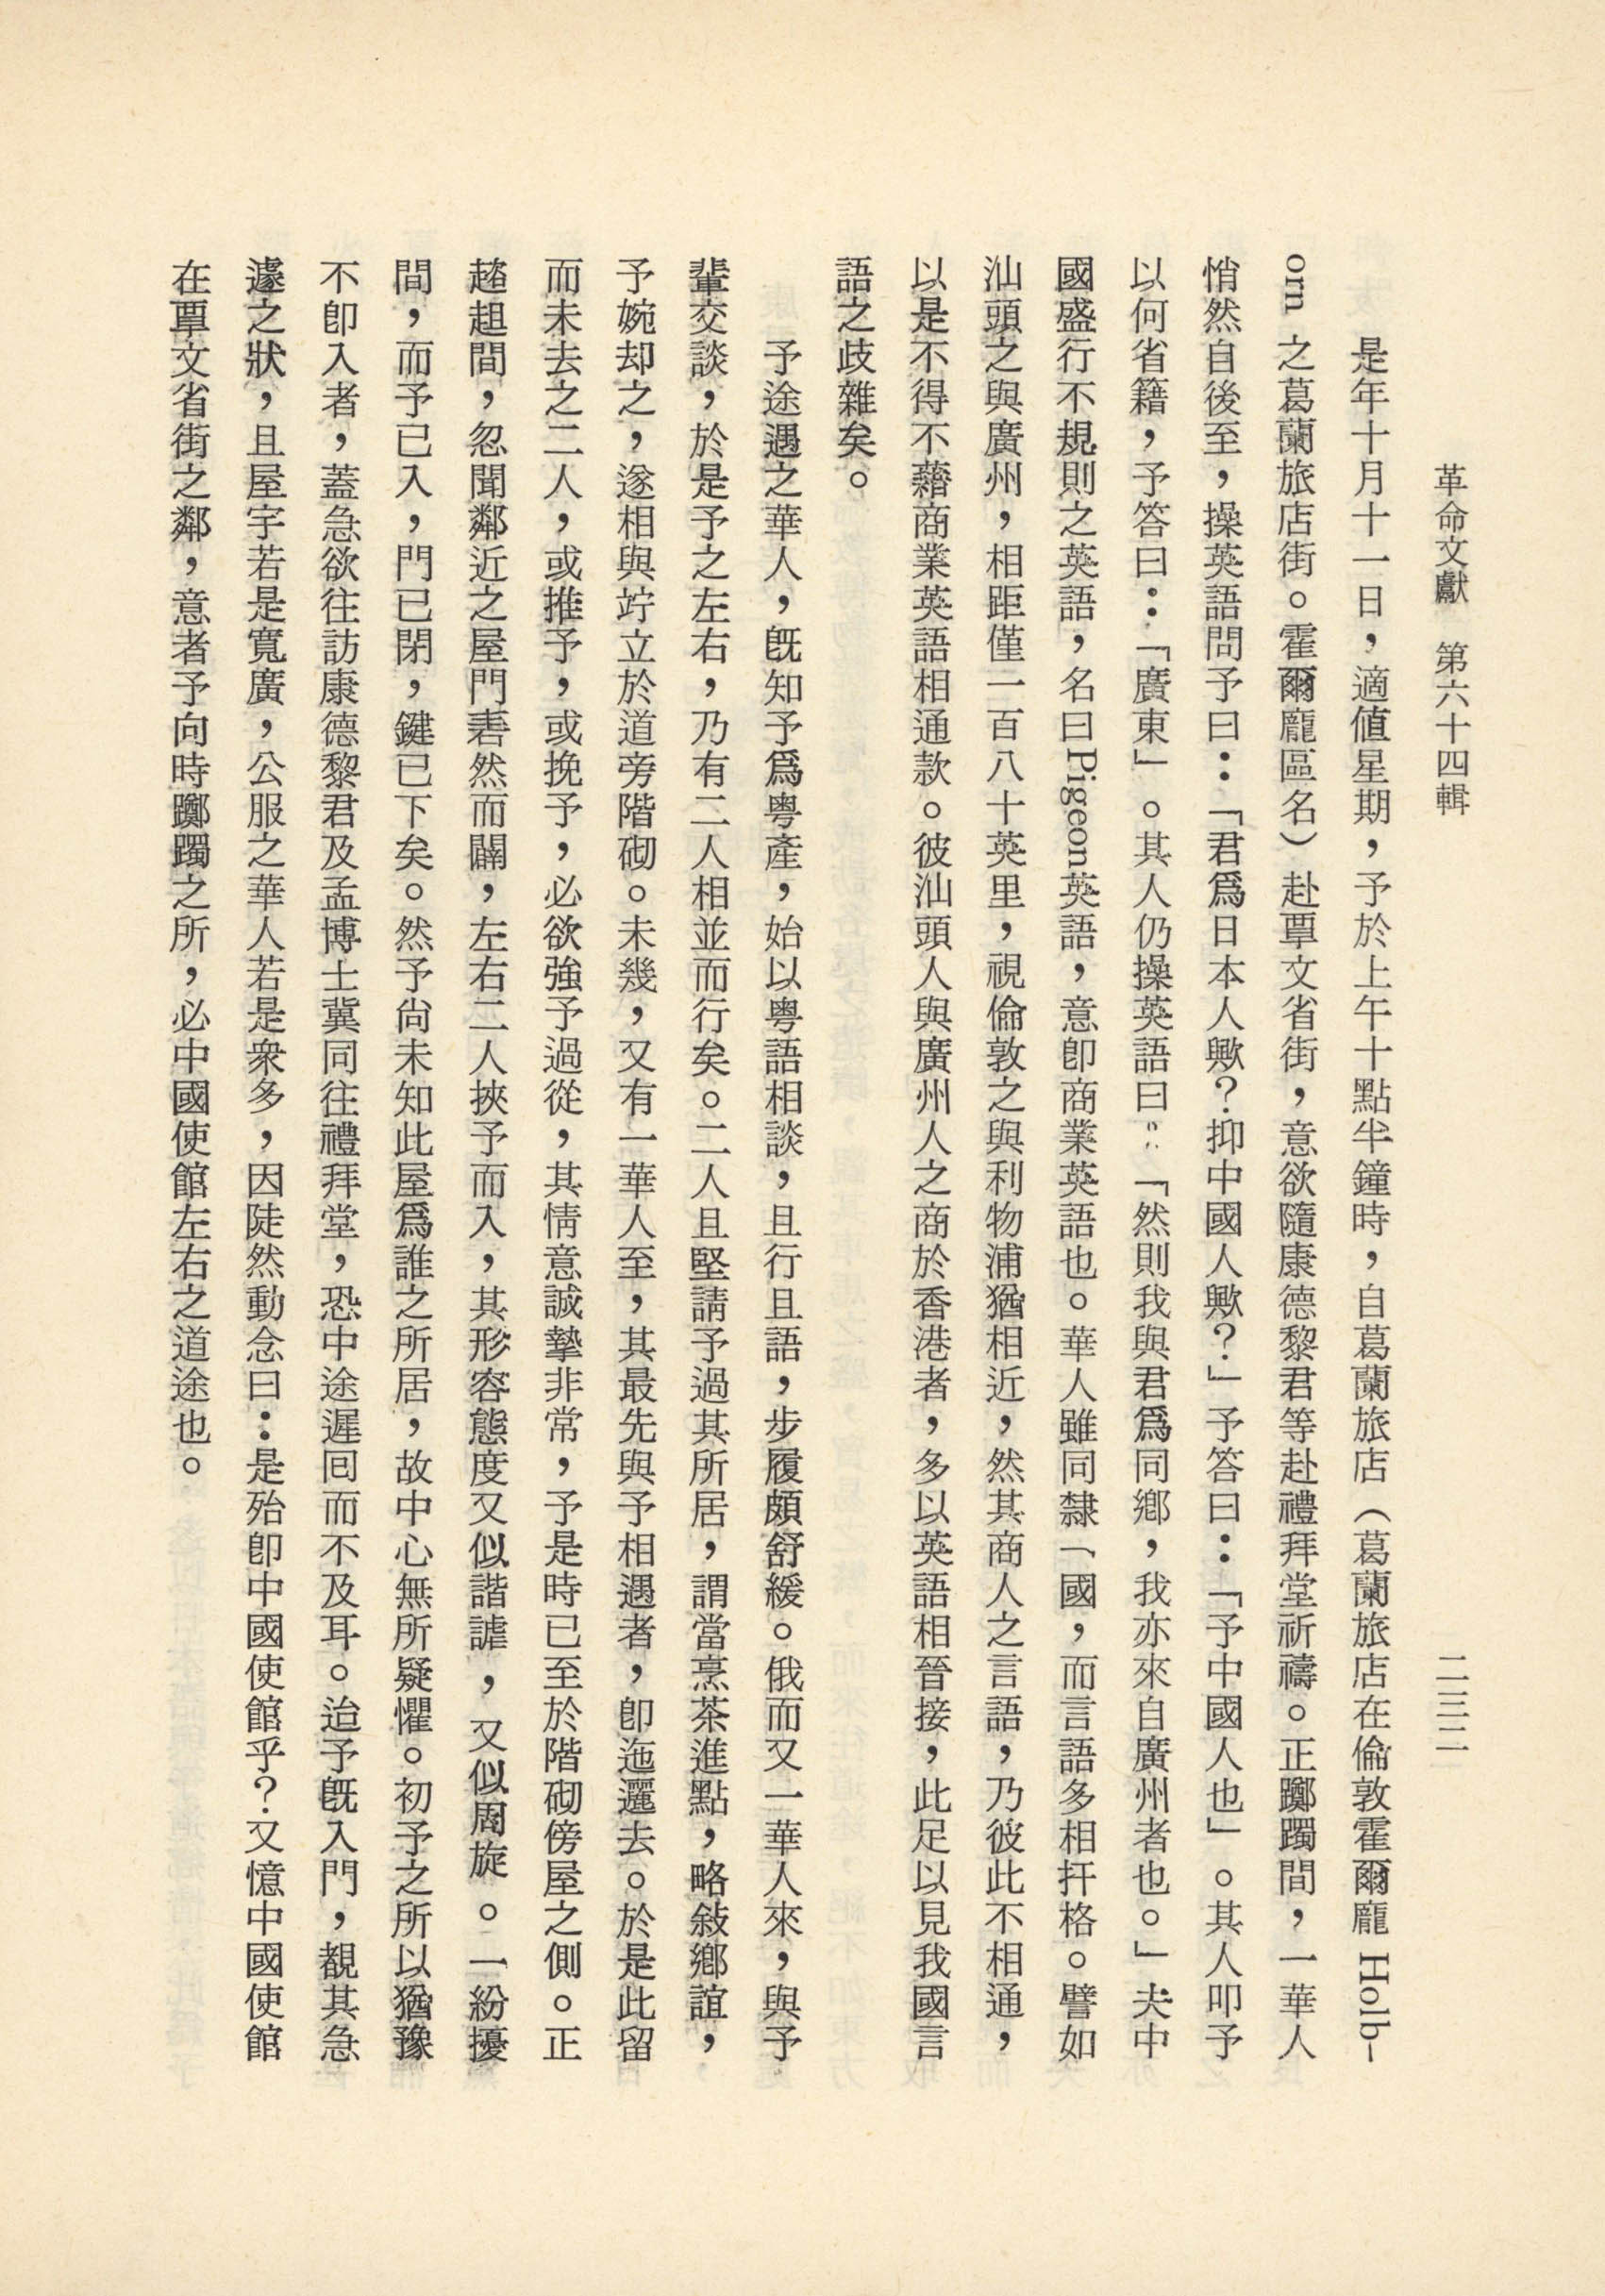 革命文獻　第六十四輯
二三二
是年十月十一日，適值星期，予於上午十點半鐘時，自葛蘭旅店（葛蘭旅店在倫敦霍爾龐 Holb-
orn 之葛蘭旅店街。霍爾龐區名）赴覃文省街，意欲隨康德黎君等赴禮拜堂祈禱。正躑躅間，一華人
悄然自後至，操英語問予曰：「君爲日本人歟？抑中國人歟？」予答曰：「予中國人也」。其人叩予
以何省籍，予答曰：「廣東」。其人仍操英語曰：「然則我與君爲同鄉，我亦來自廣州者也。」夫中
國盛行不規則之英語，名曰Pigeon英語，意卽商業英語也。華人雖同隸一國，而言語多相扞格。譬如
汕頭之與廣州，相距僅一百八十英里，視倫敦之與利物浦猶相近，然其商人之言語，乃彼此不相通，
以是不得不藉商業英語相通款。彼汕頭人與廣州人之商於香港者，多以英語相晉接，此足以見我國言
語之歧雜矣。
予途遇之華人，旣知予爲粤產，始以粤語相談，且行且語，步履頗舒緩。俄而又一華人來，與予
輩交談，於是予之左右，乃有二人相並而行矣。二人且堅請予過其所居，謂當烹茶進點，略敍鄉誼，
予婉却之，遂相與竚立於道旁階砌。未幾，又有一華人至，其最先與予相遇者，卽迤邐去。於是此留
而未去之二人，或推予，或挽予，必欲強予過從，其情意誠摯非常，予是時已至於階砌傍屋之側。正
趦趄間，忽聞鄰近之屋門砉然而闢，左右二人挾予而入，其形容態度又似諧謔，又似周旋。一紛擾
間，而予已入，門已閉，鍵已下矣。然予尙未知此屋爲誰之所居，故中心無所疑懼。初予之所以猶豫
不卽入者，蓋急欲往訪康德黎君及孟博士冀同往禮拜堂，恐中途遲囘而不及耳。迨予旣入門，覩其急
遽之狀，且屋宇若是寬廣，公服之華人若是衆多，因陡然動念曰：是殆卽中國使館乎？又憶中國使館
在覃文省街之鄰，意者予向時躑躅之所，必中國使館左右之道途也。